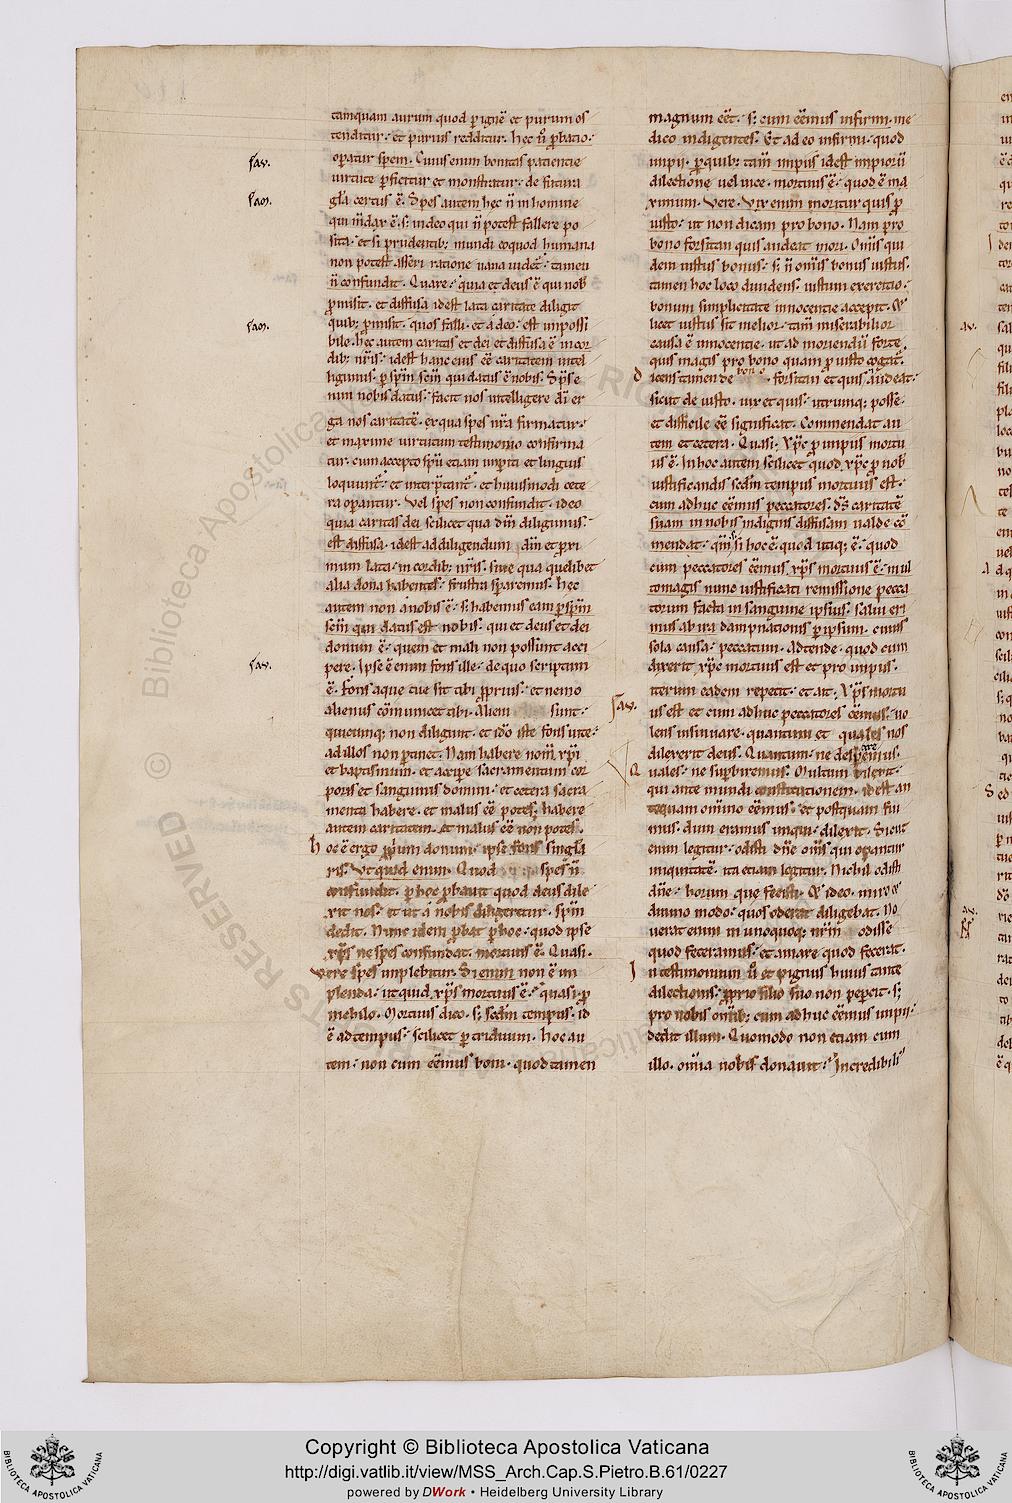 tamquam aurum quod ꝑ ignē et purum os
tenditur. et purius redditur. hec ū ꝓbatio.
oꝑatur spem. Cuius enim bonitas patientie
virtute ꝑficitur et monstratur. de futura
gła certus ē. Spes autem hec n̄ in homine
qui m̄dax ē. s; in deo qui n̄ potest fallere po
sita. et si prudentib; mundi eoquod humana
non potest asseri ratione uana uidet̄. tamen
n̄ confundit. Quare. quia et deus ē qui nob̄
ꝓmisit. et diffusa idest lata caritate diligit
quib; ꝓmisit. quos falli. et a deo. est impossi
bile. hec autem caritas et dei et diffusa ē in cor
dib; nr̄is. idest hanc eius eē caritatem intel
ligimus. ꝑ sp̄m sc̄m qui datus ē nobis. Sp̄s e
nim nobis datus. facit nos intelligere dī er
ga nos caritatē. ex qua spes nr̄a firmatur.
et maxime uirtutum testimonio confirma
tur. cum accepto sp̄u etiam imꝑiti et linguis
loquunt̄. et inteꝑtant̄. et huiusmodi cete
ra oꝑantur. Vel spes non confundit. ideo
quia caritas dei scilicet qua dm̄ diligimus.
est diffusa. idest ad diligendum dm̄ et ꝓxi
mum lata. in cordib; nr̄is. sine qua quelibet
alia dona habentes. frustra sꝑaremus. hec
autem non a nobis ē. s; habemus eam ꝑ sp̄m
sc̄m qui datus est nobis. qui et deus et dei
donum ē. quem et mali non possunt acci
pere. Ipse ē enim fons ille. de quo scriptum
ē. Fons aque tue sit tibi ꝓprius. et nemo
alienus cōmunicet tibi. Alieni sunt.
quicumq; non diligunt. et ido iste fons uite.
ad illos non ꝑtinet. Nam habere nom̄ xp̄i
et baptismum. et acciꝑe sacramentum cor
poris et sanguinis domini. et cetera sacra
menta habere. et malus eē potest. habere
autem caritatem. et malus eē non potest.
hoc ē ergo ꝓprium donum. ipse fons singła
ris. Vt quid enim. Quod spes n̄
confundit. ꝑ hoc ꝓbauit quod deus dile
xit nos. et ut a nobis diligeretur. sp̄m
dedit. Nunc idem ꝓbat ꝑ hoc. quod ipse
xp̄s ne spes confundat. mortuus ē. Quasi.
vere spes implebitur. Si enim non ē im
plenda. ut quid xp̄s mortuus ē. quasi ꝓ
nichilo. Mortuus dico. s; sc̄dm tempus. id
ē ad tempus. scilicet ꝑ triduum. Hoc au
tem. non cum eēmus boni. quod tamen
magnum eēt. s; cum eēmus infirmi. me
dico indigentes. Et ad eo infirmi. quod
impij. ꝓ quib; tam̄ impijs idest impiorū
dilectione uel uice. mortuus ē. quod ē ma
ximum. Vere. Vix enim moritur quis ꝓ
iusto. ut non dicam pro bono. Nam pro
bono forsitan quis audeat mori. Om̄is qui
dem iustus bonus. s; n̄ om̄is bonus iustus.
tamen hoc loco diuidens. iustum exercitio.
bonum simplicitate innocentie accepit. Et
licet iustus sit melior. tam̄ miserabilior
causa ē innocentie. ut ad moriendū forte.
quis magis pro bono quam ꝓ iusto cogat̄.
dicens tamen de bono. forsitan et quis audeat.
sicut de iusto. uix et quis. utrumq; posse.
et difficile eē significat. Commendat au
tem et cetera. Quasi. xp̄c ꝓ impijs mortu
us ē. In hoc autem scilicet quod xp̄c ꝓ nob̄
iustificandis sc̄dm tempus mortuus est.
cum adhuc eēmus peccatores. ds̄ caritatē
suam in nobis indignis diffusam ualde cō
mendat. qm̄ si hoc ē. quod utiq; ē. quod
cum peccatores eēmus. xp̄s mortuus ē. mul
tomagis nunc iustificati remissione pecca
torum facta in sanguine ipsius. salui eri
mus ab ira dampnationis ꝑ ipsum. cuius
sola causa. peccatum. Adtende. quod cum
dixerit xp̄c mortuus est et pro impijs.
iterum eadem repetit. et ait. xp̄s mortu
us est et cum adhuc peccatores eēmus. uo
lens insinuare. quantum et quales nos
dilexerit deus. Quantum. ne despemus.
Quales. ne suꝑbiremus. Multum dilexit.
qui ante mundi constitutionem. idest an
tequam om̄ino eēmus. et postquam fui
mus. dum eramus iniqui. dilexit. Sicut
enim legitur. odisti dn̄e om̄s qui oꝑantur
iniquitatē. ita etiam legitur. Nichil odisti
dn̄e. horum que fecisti. Et ideo. miro
diuino modo. quos oderat diligebat. No
uerat enim in unoquoq; nr̄m odisse
quod feceramus. et amare quod fecerat.
In testimonium ū et pignus huius tante
dilectionis. ꝓprio filio suo non pepercit. s;
pro nobis om̄ib; cum adhuc eēmus impij.
dedit illum. Quomodo non etiam cum
illo. om̄ia nobis donauit. Incredibili
Copyright © Biblioteca Apostolica Vaticana
http://digi.vatlib.it/view/MSS_Arch.Cap.S.Pietro.B.61/0227
powered by DWork • Heidelberg University Library